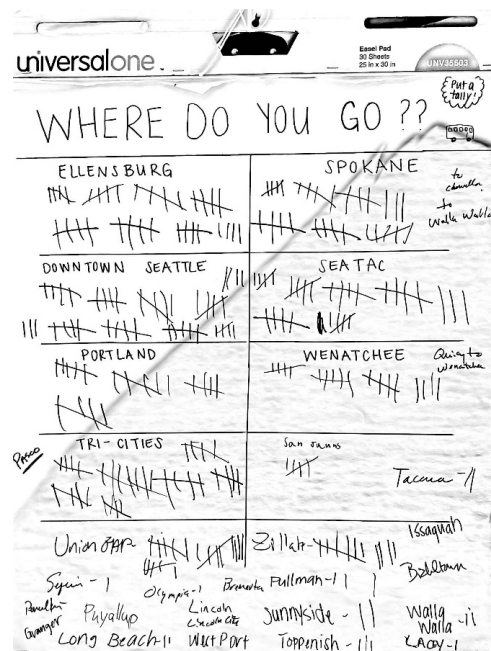 universalone.
Easel Pad
30 Sheets
25 in x 30 in
UNV35603
Put a
tally!
WHERE DO YOU GO ??
ELLENSBURG
SPOKANE
to
to
Walla Walla
DOWNTOWN SEATTLE
SEATAC
PORTLAND
WENATCHEE
Quincy to
Wenatchee
TRI-CITIES
PASCO
San Juans
Tacoma - II
Union GAP
Zillah -
Issaquah
Sequim - I
Olympia - I
Bremerton
Pullman - II
Granger
Puyallup
Lincoln
Lincoln City
Sunnyside - II
Walla
Walla - ii
Long Beach - II
West Port
Toppenish - III
LACEY - I